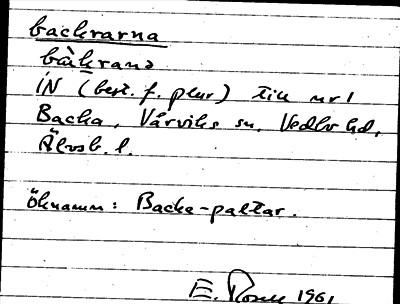 backrarna
bàkrana
iN (best. f. plur) till nr 1
Backa, Vårviks sn, Vedbo hd,
Älvsb. l.
Öknamn: Backa-paltar.
E. Rosell 1961